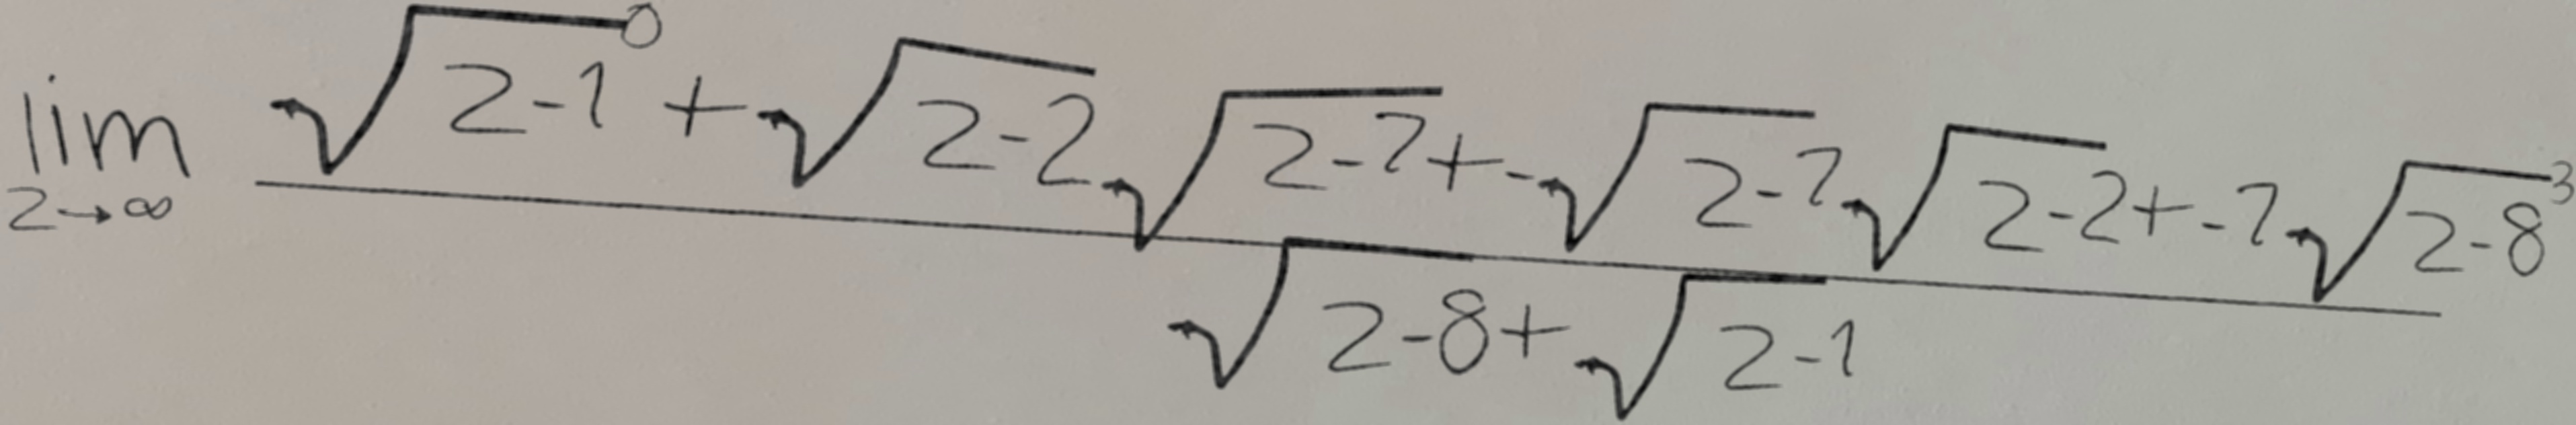 lim z→∞ (√(z-1)^0 + √(z-2) √(z-7) + -√(z-7) √(z-2) + -7 √(z-8)^3) / (√(z-8) + √(z-1))